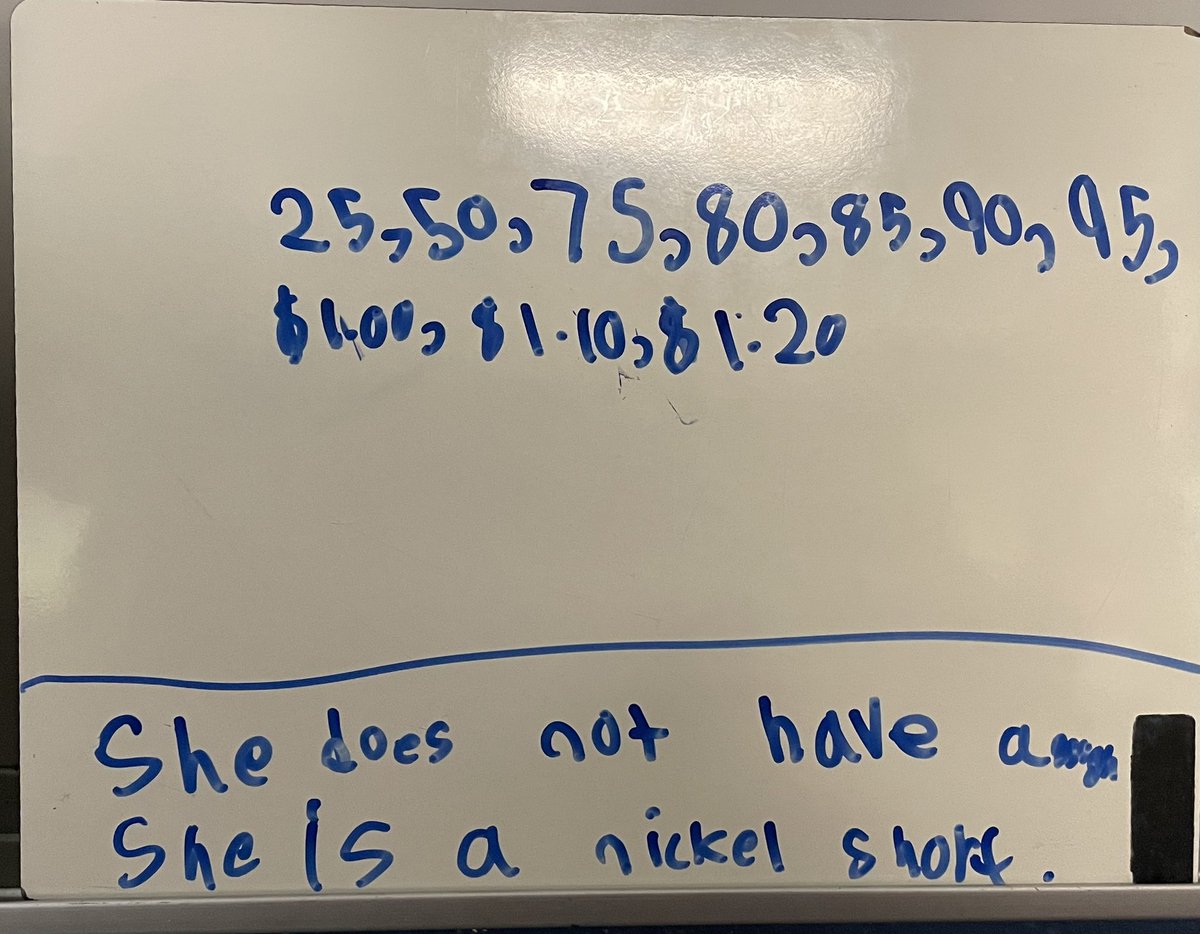 25, 50, 75, 80, 85, 90, 95,
$1.00, $1.10, $1.20
She does not have
She is a nickel short.